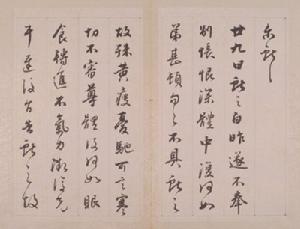 廿九日獻之白昨遂不奉
別悵恨深體中復何如
弟甚頓匆匆不具獻之
故殊黃瘦憂馳可言寒
切不審尊體復何如眠
食轉進不氣力漸復先
耳遲復告獻之故